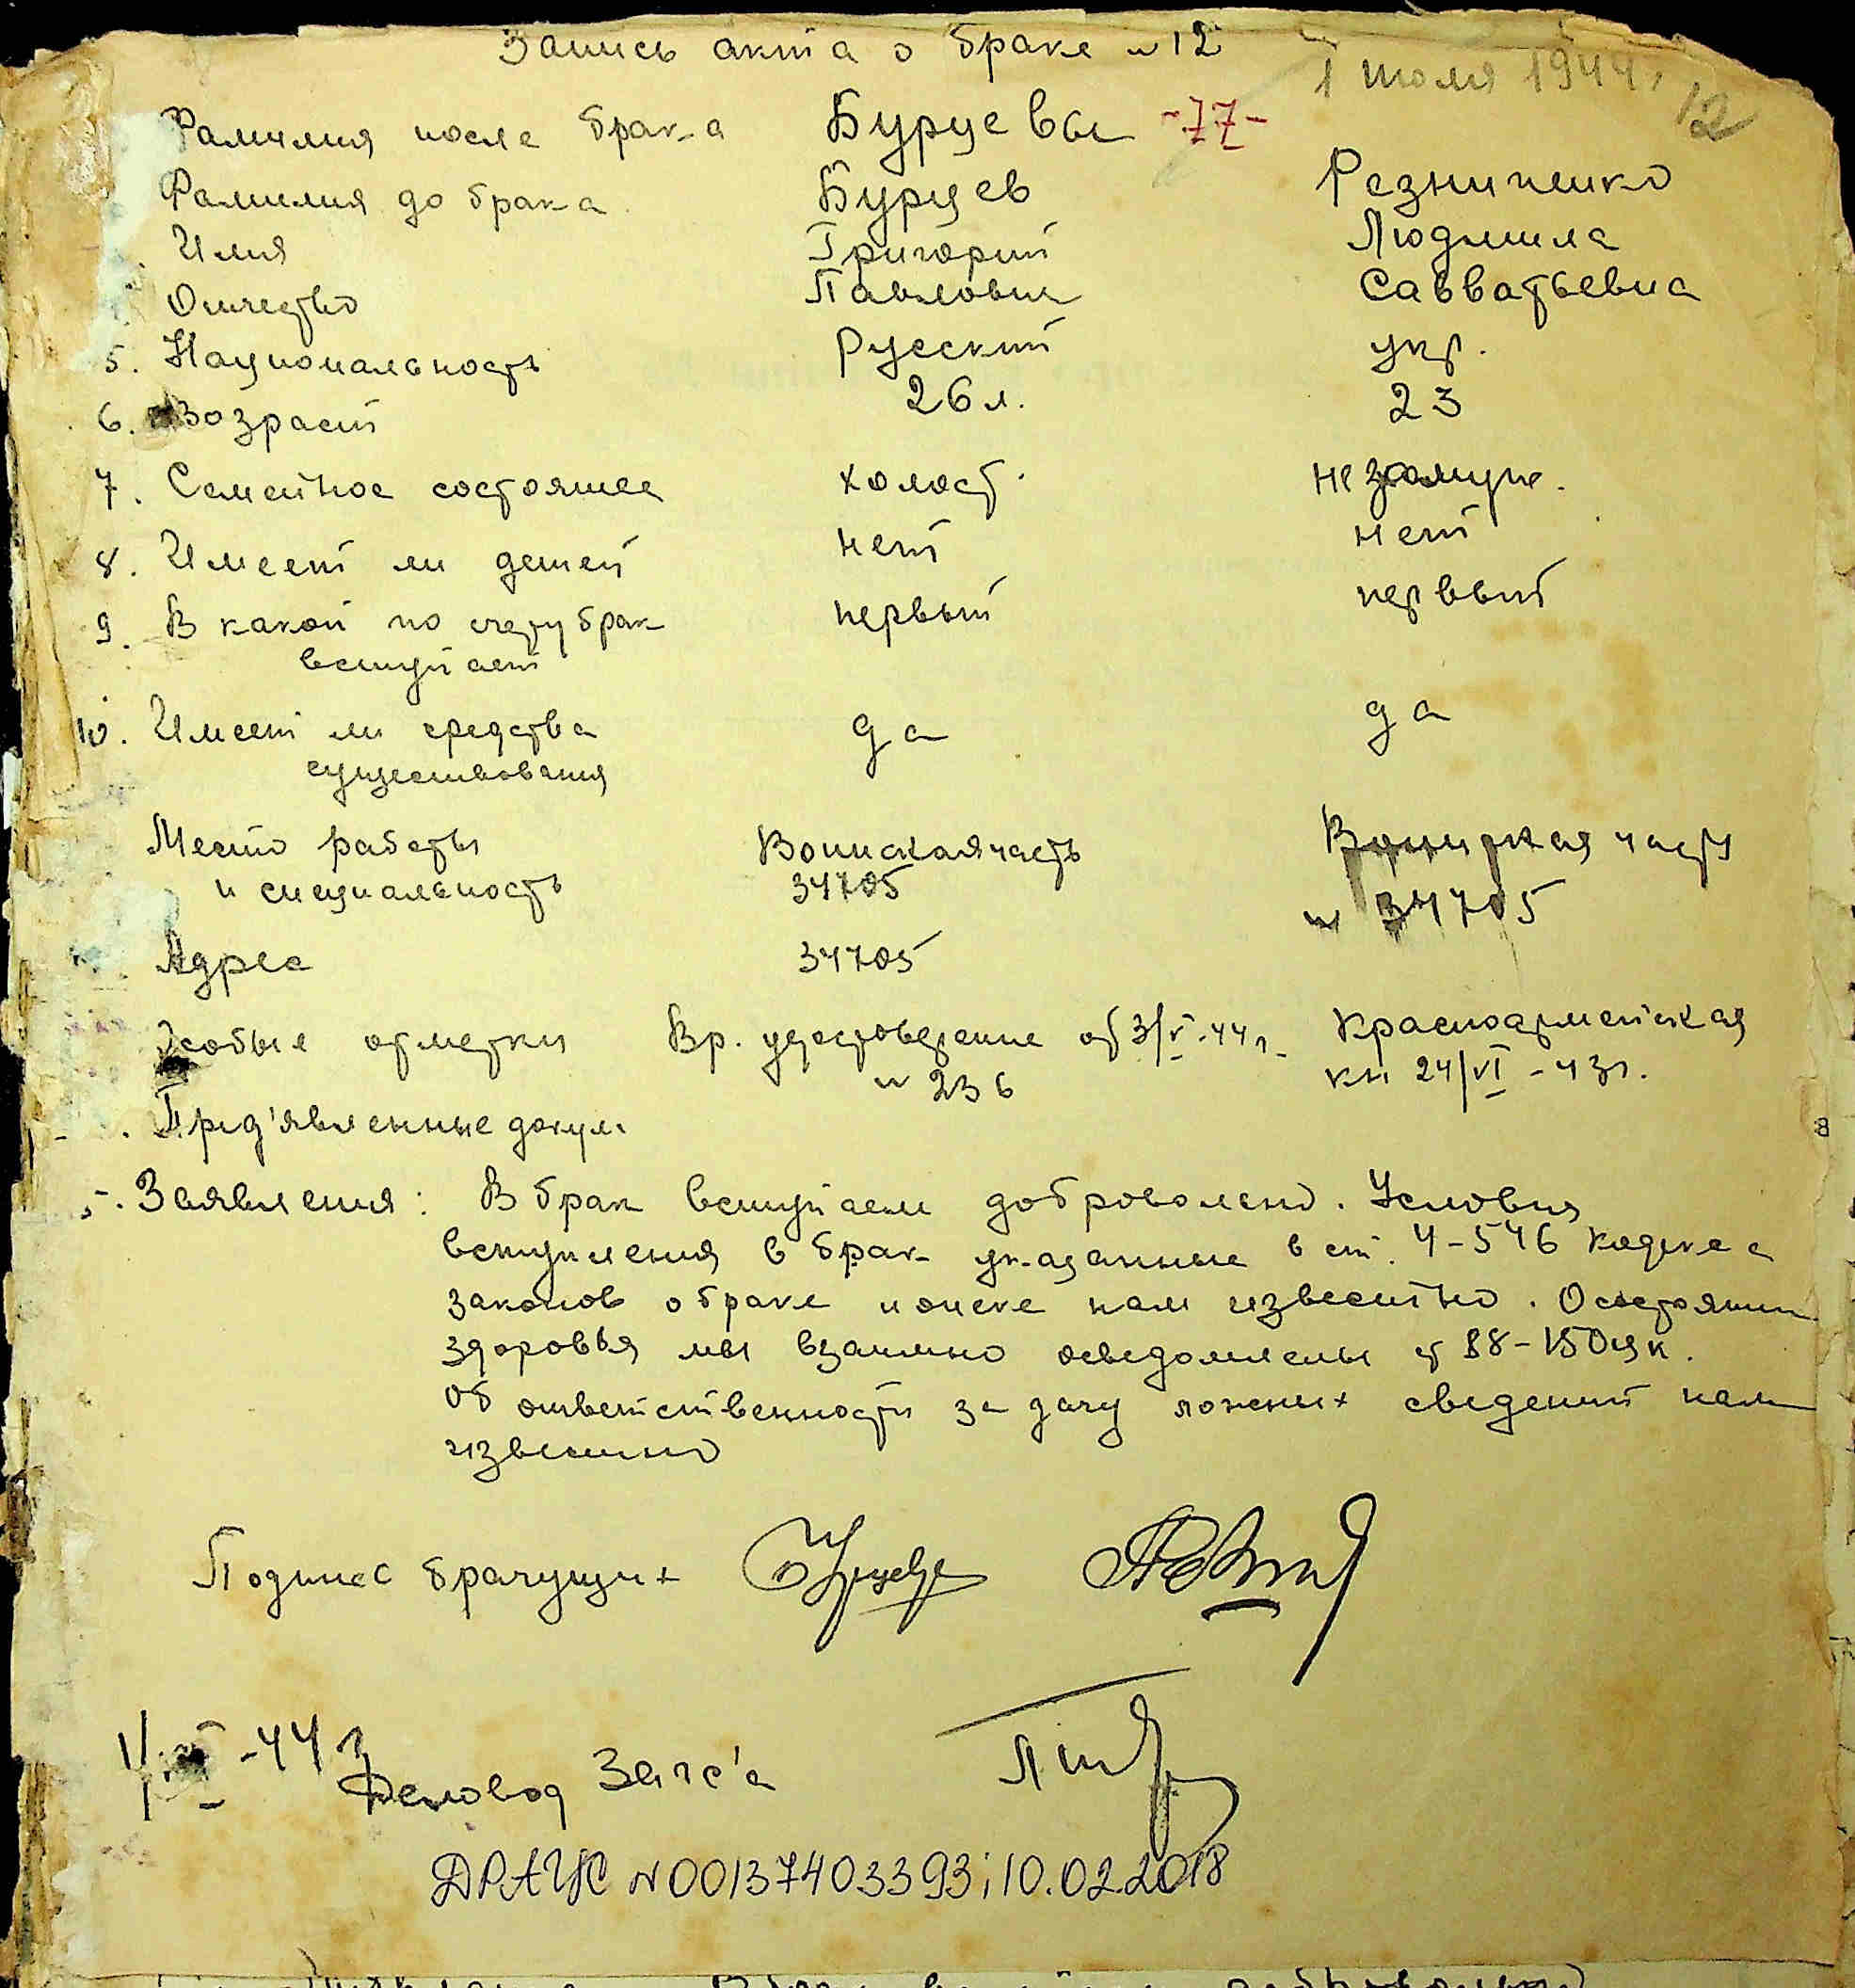 Запись акта о браке № 12
1 июля 1944г
12
Фамилия после брака Бурцевы -77-
Фамилия до брака Бурцев Резниченко
Имя Григорий Людмила
Отчество Павлович Савватьевна
5. Национальность Русский укр.
6. Возраст 26 л. 23
7. Семейное состояние холост. незамуж.
8. Имеет ли детей нет нет
9. В какой по счету брак первый первый
вступает
10. Имеет ли средства да да
существования
Место работы Воинская часть Воинская часть
и специальность 34705 № 34705
Адрес 34705
Особые отметки Вр. удостоверение от 3/V-44 г. Красноармейская
№ 236 кн 24/VI-43г.
Пред'явленные докум.
Заявления: В брак вступаем добровольно. Условия
вступления в брак указанные в ст. 4-546 Кодекса
законов о браке и опеке нам известно. О состоянии
здоровья мы взаимно осведомлены ст 88-150 цк.
Об ответственности за дачу ложных сведений нам
известно
Подпис брачущих Бурцев
1/ -44 г
Деловод Загс'а
ДРАЦС N00137403393; 10.02.2018